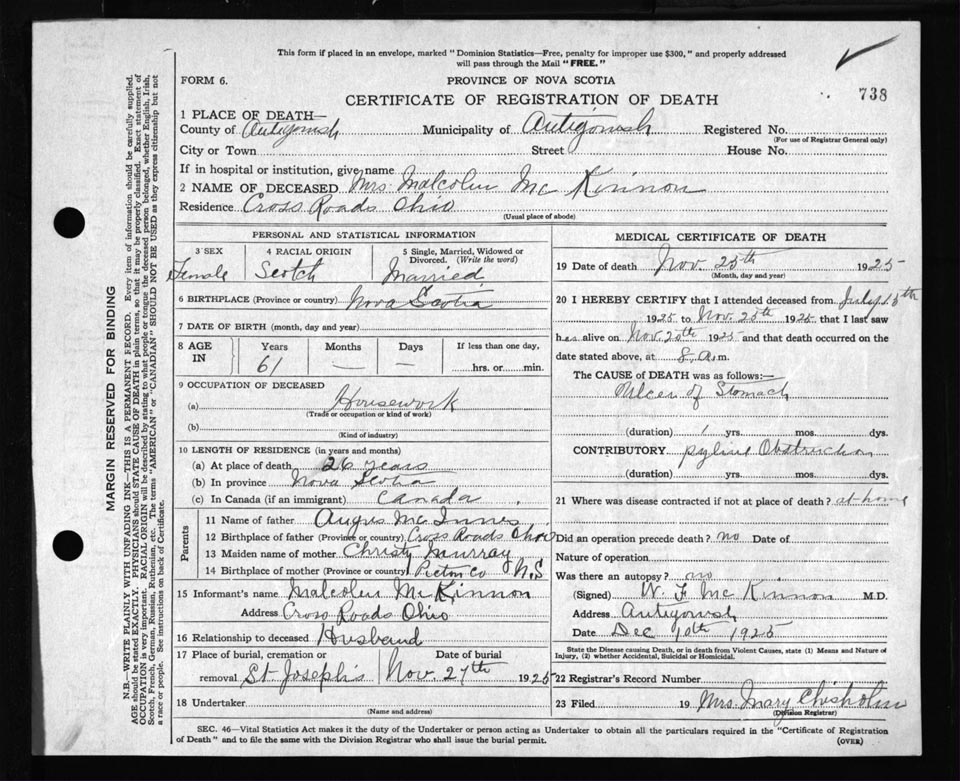 This form if placed in an envelope, marked "Dominion Statistics—Free, penalty for improper use $300," and properly addressed
will pass through the Mail "FREE."
FORM 6.
PROVINCE OF NOVA SCOTIA
738
CERTIFICATE OF REGISTRATION OF DEATH
1 PLACE OF DEATH—
County of Antigonish Municipality of Antigonish Registered No.
(For use of Registrar General only)
City or Town Street House No.
If in hospital or institution, give name
2 NAME OF DECEASED Mrs. Malcolm Mc Kinnon
Residence Cross Roads Ohio
(Usual place of abode)
PERSONAL AND STATISTICAL INFORMATION
3 SEX 4 RACIAL ORIGIN 5 Single, Married, Widowed or
Divorced. (Write the word)
Female Scotch Married
6 BIRTHPLACE (Province or country) Nova Scotia
7 DATE OF BIRTH (month, day and year)
8 AGE IN Years Months Days If less than one day,
61 — — hrs. or min.
9 OCCUPATION OF DECEASED
(a) Housework
(Trade or occupation or kind of work)
(b)
(Kind of industry)
10 LENGTH OF RESIDENCE (in years and months)
(a) At place of death 26 years
(b) In province Nova Scotia
(c) In Canada (if an immigrant) Canada
Parents
11 Name of father Angus Mc Innes
12 Birthplace of father (Province or country) Cross Roads Ohio
13 Maiden name of mother Christy Murray
14 Birthplace of mother (Province or country) Pictou Co N.S
15 Informant's name Malcolm Mc Kinnon
Address Cross Roads Ohio
16 Relationship to deceased Husband
17 Place of burial, cremation or Date of burial
removal St Joseph's Nov. 27th 1925
18 Undertaker
(Name and address)
MEDICAL CERTIFICATE OF DEATH
19 Date of death Nov. 25th 1925
(Month, day and year)
20 I HEREBY CERTIFY that I attended deceased from July 15th
1925 to Nov. 25th 1925 that I last saw
her alive on Nov. 25th 1925 and that death occurred on the
date stated above, at 8 a.m.
The CAUSE of DEATH was as follows:—
Ulcer of Stomach
(duration) 1 yrs. mos. dys.
CONTRIBUTORY Obstruction
(duration) yrs. mos. dys.
21 Where was disease contracted if not at place of death? at home
Did an operation precede death? no Date of
Nature of operation
Was there an autopsy? no
(Signed) W. F. Mc Kinnon M.D.
Address Antigonish
Date Dec 10th 1925
State the Disease causing Death, or in death from Violent Causes, state (1) Means and Nature of
Injury, (2) whether Accidental, Suicidal or Homicidal.
22 Registrar's Record Number
23 Filed 19 Mrs. Mary Chisholm
(Division Registrar)
SEC. 46—Vital Statistics Act makes it the duty of the Undertaker or person acting as Undertaker to obtain all the particulars required in the "Certificate of Registration
of Death" and to file the same with the Division Registrar who shall issue the burial permit.
(OVER)
MARGIN RESERVED FOR BINDING
N.B.—WRITE PLAINLY WITH UNFADING INK—THIS IS A PERMANENT RECORD. Every item of information should be carefully supplied.
AGE should be stated EXACTLY. PHYSICIANS should STATE CAUSE OF DEATH in plain terms, so that it may be properly classified. Exact statement of
OCCUPATION is very important. RACIAL ORIGIN will be described by stating to what people or tongue the deceased person belonged, whether English, Irish,
Scotch, French, German, Russian, Ruthenian, etc. The terms "AMERICAN" or "CANADIAN" SHOULD NOT BE USED as they express citizenship but not
a race or people. See instructions on back of Certificate.